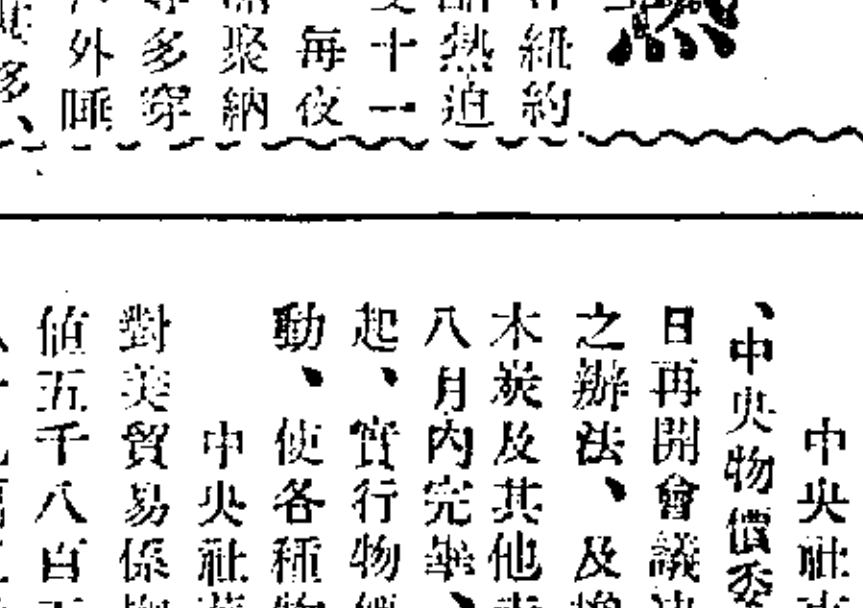 熱
紐約
熱迫
十一
每夜
聚納
多穿
外睡
多、
中央社
、中央物價委
日再開會議
之辦法、及
木炭及其他
八月內完畢、
起、實行物價
動、使各種物
中央社
對美貿易係
值五千八百